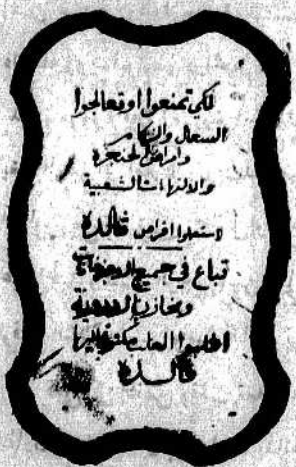 لكي تمنعوا او تعالجوا
السعال والزكام
وامراض الحنجرة
والالتهابات الشعبية
استعملوا اقراص فالدة
تباع في جميع الاجزخانات
ومخازن الادوية
اطلبوا العلب مكتوب عليها
فالدة